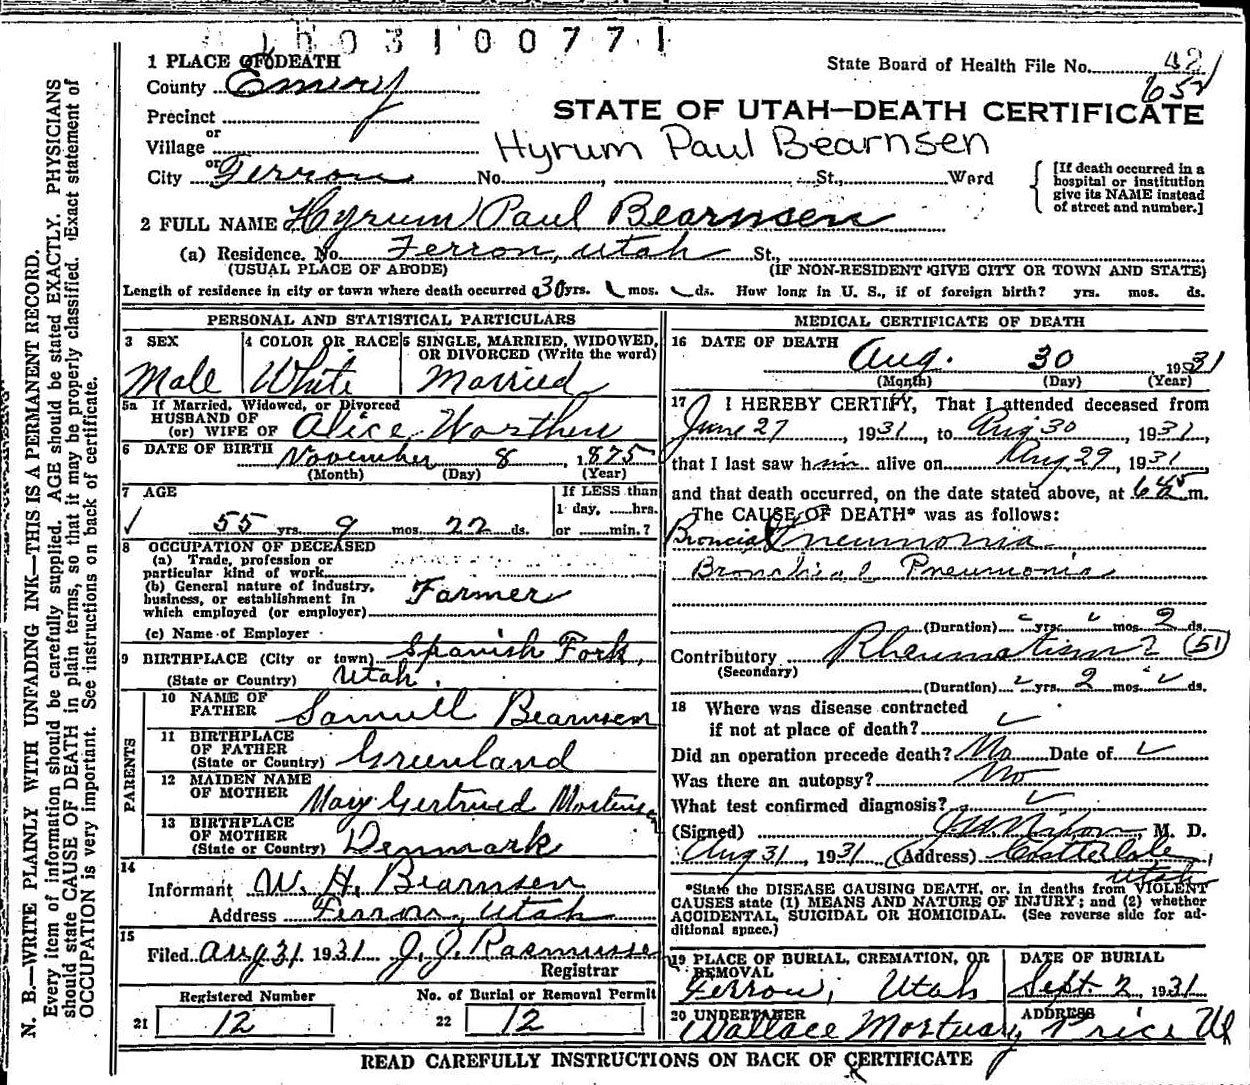 1003100771
1 PLACE OF DEATH
State Board of Health File No. 42
652
County Emery
STATE OF UTAH—DEATH CERTIFICATE
Precinct
or
Village
Hyrum Paul Bearnsen
or
City Ferron No. , St., Ward
[If death occurred in a
hospital or institution
give its NAME instead
of street and number.]
2 FULL NAME Hyrum Paul Bearnsen
(a) Residence. No. Ferron, Utah St.,
(USUAL PLACE OF ABODE) (IF NON-RESIDENT GIVE CITY OR TOWN AND STATE)
Length of residence in city or town where death occurred 30 yrs. mos. ds. How long in U. S., if of foreign birth? yrs. mos. ds.
PERSONAL AND STATISTICAL PARTICULARS
3 SEX
Male
4 COLOR OR RACE
White
5 SINGLE, MARRIED, WIDOWED,
OR DIVORCED (Write the word)
Married
5a If Married, Widowed, or Divorced
HUSBAND OF
(or) WIFE OF Alice Worthen
6 DATE OF BIRTH November 8, 1875
(Month) (Day) (Year)
7 AGE
55 yrs. 9 mos. 22 ds.
If LESS than
1 day, hrs.
or min.?
8 OCCUPATION OF DECEASED
(a) Trade, profession or
particular kind of work
(b) General nature of industry,
business, or establishment in
which employed (or employer)
Farmer
(c) Name of Employer
9 BIRTHPLACE (City or town) Spanish Fork,
(State or Country) Utah.
PARENTS
10 NAME OF
FATHER Samuell Bearnsen
11 BIRTHPLACE
OF FATHER
(State or Country) Greenland
12 MAIDEN NAME
OF MOTHER Mary Gertrued
13 BIRTHPLACE
OF MOTHER
(State or Country) Denmark
14
Informant W. H. Bearnsen
Address Ferron, Utah
15
Filed Aug 31 1931 J. J. Rasmussen
Registrar
Registered Number
21 12
No. of Burial or Removal Permit
22 12
MEDICAL CERTIFICATE OF DEATH
16 DATE OF DEATH
Aug. 30, 1931
(Month) (Day) (Year)
17 I HEREBY CERTIFY, That I attended deceased from
June 27, 1931, to Aug 30, 1931,
that I last saw him alive on Aug 29, 1931
and that death occurred, on the date stated above, at 645 m.
The CAUSE OF DEATH* was as follows:
Broncial Pneumonia
Bronchial Pneumonia
(Duration) yrs. mos. 2 ds.
Contributory Rheumatism 2 (51)
(Secondary)
(Duration) yrs. 2 mos. ds.
18 Where was disease contracted
if not at place of death?
Did an operation precede death? No Date of
Was there an autopsy? No
What test confirmed diagnosis?
(Signed) M. D.
Aug 31, 1931 (Address) Castledale,
Utah
*State the DISEASE CAUSING DEATH, or, in deaths from VIOLENT
CAUSES state (1) MEANS AND NATURE OF INJURY; and (2) whether
ACCIDENTAL, SUICIDAL OR HOMICIDAL. (See reverse side for ad-
ditional space.)
19 PLACE OF BURIAL, CREMATION, OR
REMOVAL
Ferron, Utah
DATE OF BURIAL
Sept. 2, 1931
20 UNDERTAKER
Wallace Mortuary
ADDRESS
Price Ut
READ CAREFULLY INSTRUCTIONS ON BACK OF CERTIFICATE
N. B.—WRITE PLAINLY WITH UNFADING INK—THIS IS A PERMANENT RECORD.
Every item of information should be carefully supplied. AGE should be stated EXACTLY. PHYSICIANS
should state CAUSE OF DEATH in plain terms, so that it may be properly classified. Exact statement of
OCCUPATION is very important. See instructions on back of certificate.